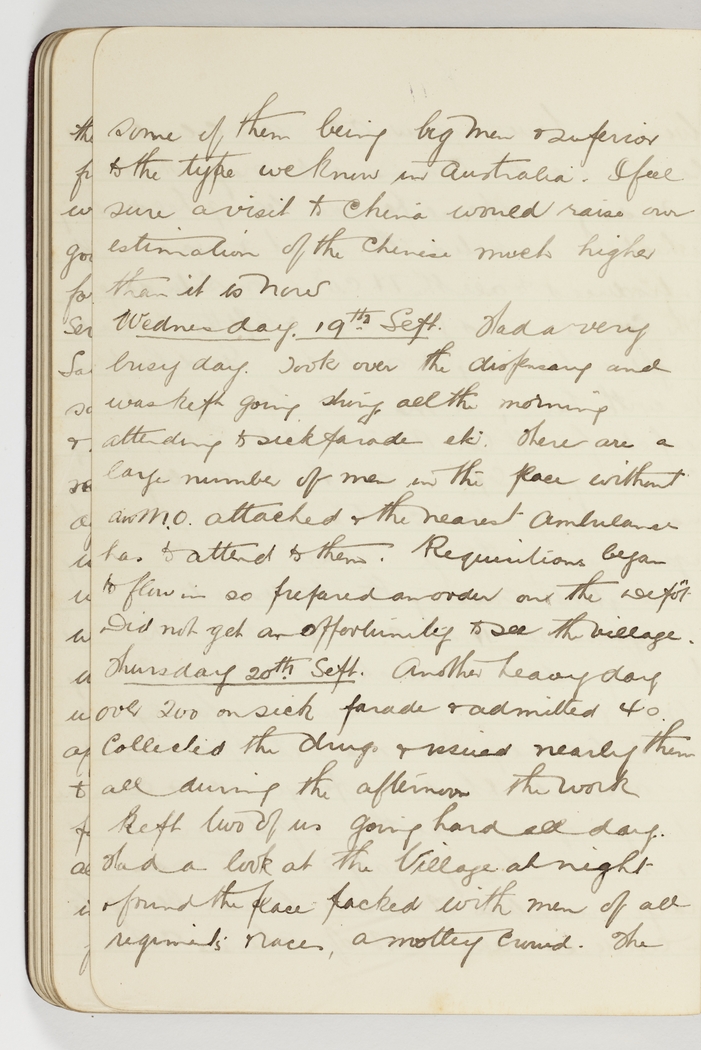 some of them being big men & superior
to the type we know in Australia. I feel
sure a visit to China would raise our
estimation of the Chinese much higher
than it is now
Wednesday. 19th Sept. Had a very
busy day. Took over the dispensary and
was kept going strong all the morning
attending to sick parade etc. There are a
large number of men in the place without
an M.O. attached & the nearest Ambulance
has to attend to them. Requisitions began
to flow in so prepared an order on the depôt
Did not get an opportunity to see the village.
Thursday 20th Sept. Another heavy day
over 200 on sick parade & admitted 40.
Collected the drugs & issued nearly them
all during the afternoon the work
kept two of us going hard all day.
Had a look at the Village at night
& found the place packed with men of all
regiments & races, a motley crowd. The